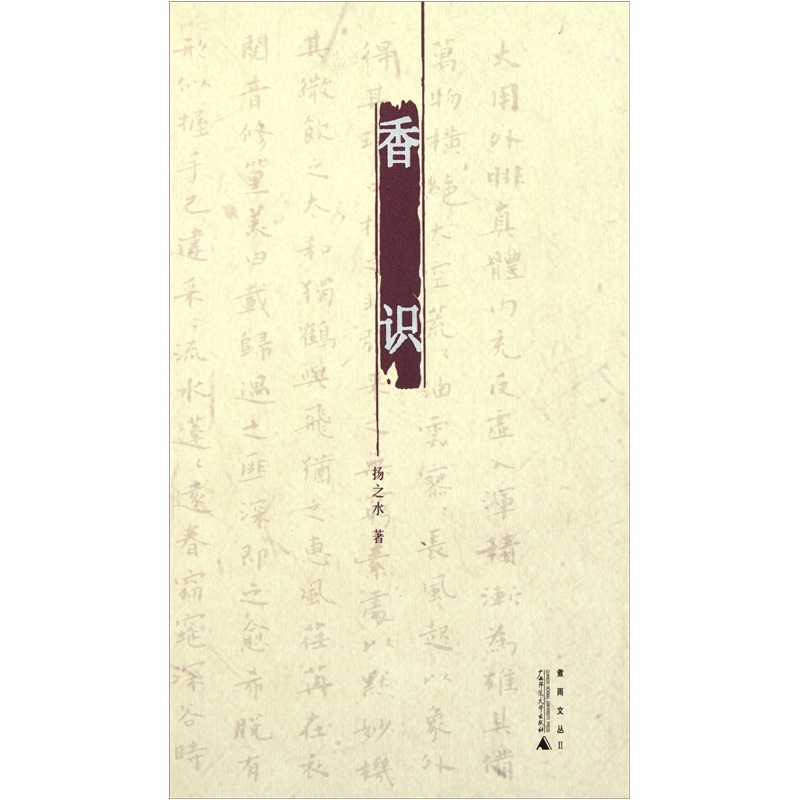 香识
扬之水 著
煮雨文丛II
广西师范大学出版社
GUANGXI NORMAL UNIVERSITY PRESS
大用外腓真體内充反虛入渾積漸為雄具備
萬物橫絶大空荒〻油雲寥〻長風起以象外
得其 之無窮素處以默妙機
其微飲之太和獨鶴與飛猶之惠風荏苒在衣
閱音修篁美曰載歸遇之匪深即之愈希脫有
形似握手已違采〻流水蓬〻遠春窈窕深谷時